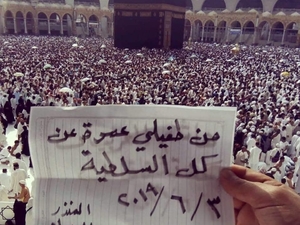 من طفيلي عمرة عن
كل السلطية
٢٠١٩/٦/٣
المنذر